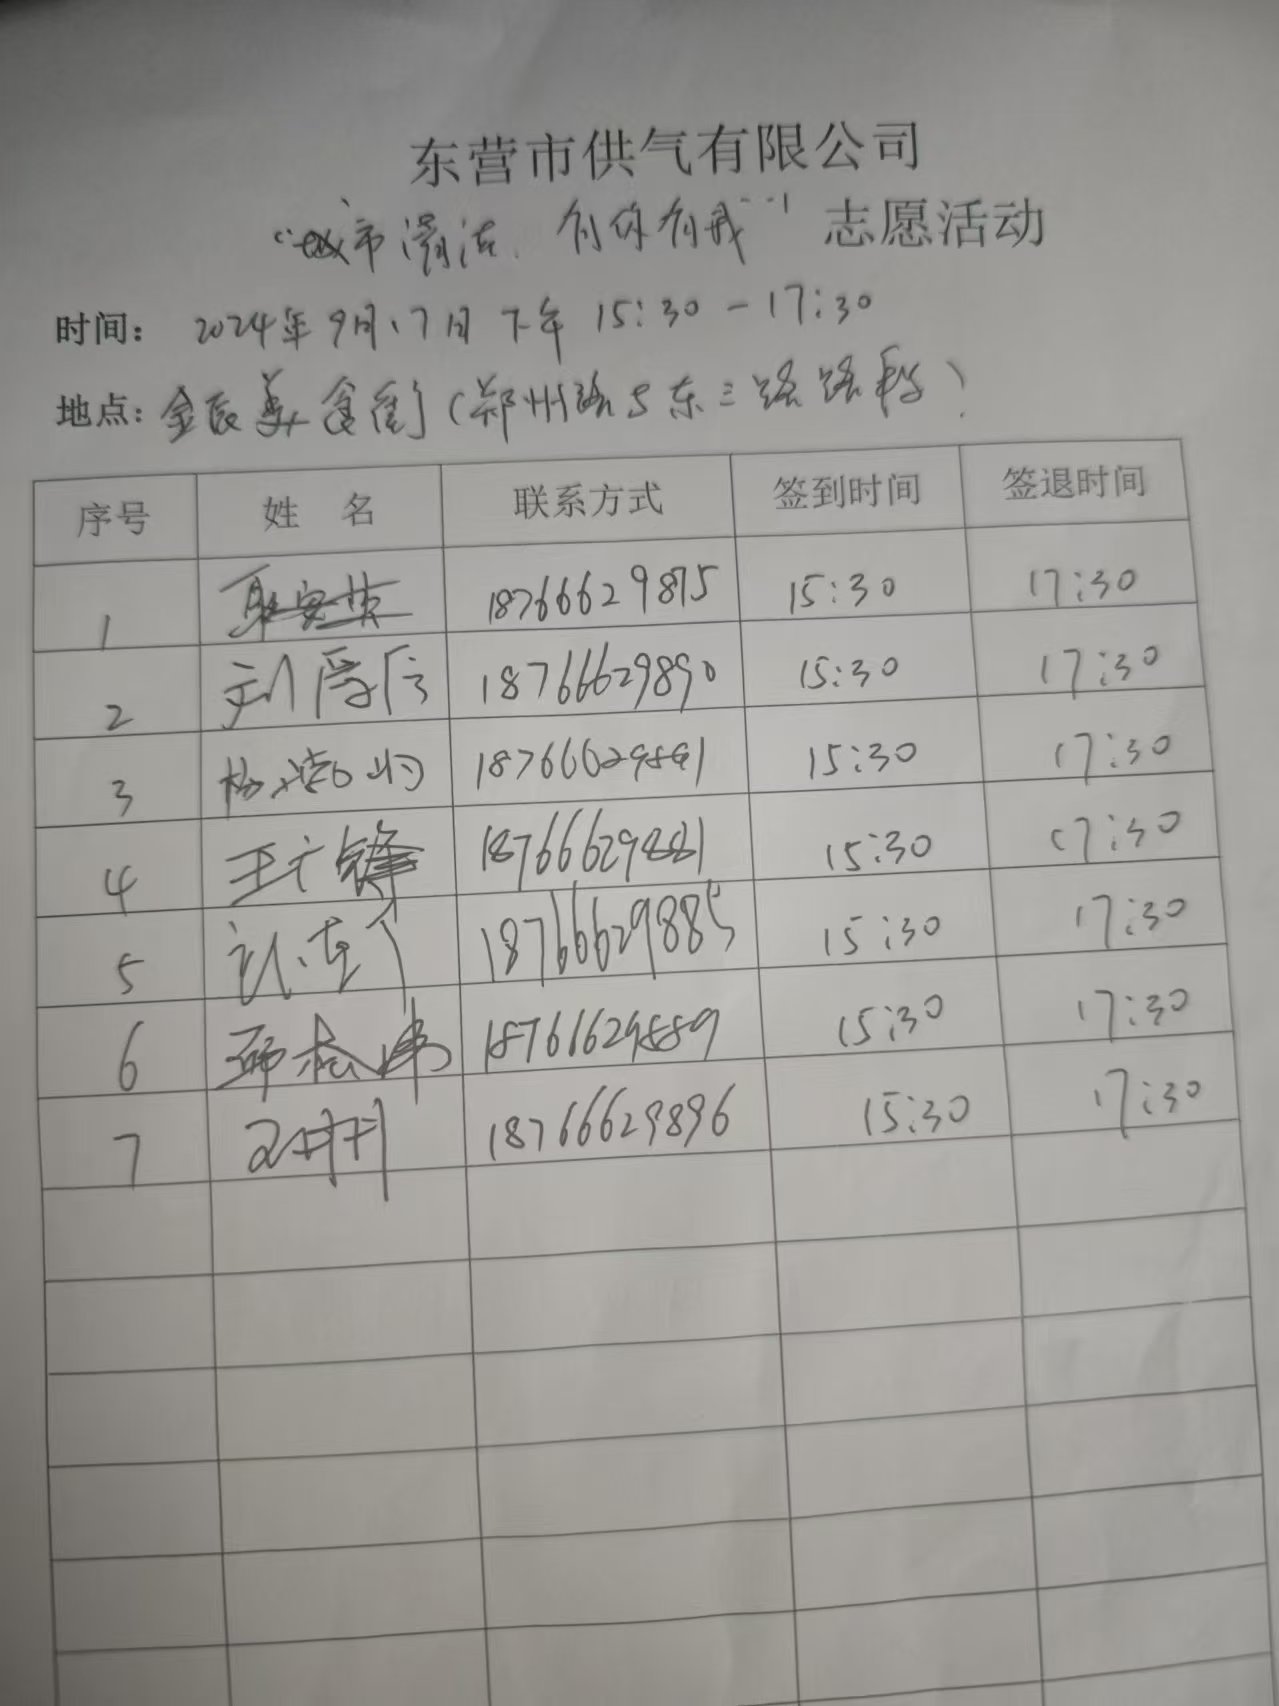 东营市供气有限公司
“城市清洁、有你有我” 志愿活动
时间： 2024年9月17日 下午 15:30－17:30
地点：金辰美食街（郑州路与东三路路段）
序号 姓 名 联系方式 签到时间 签退时间
1 18766629875 15:30 17:30
2 18766629890 15:30 17:30
3 18766629891 15:30 17:30
4 王广锋 18766629881 15:30 17:30
5 18766629885 15:30 17:30
6 18766629889 15:30 17:30
7 18766629896 15:30 17:30